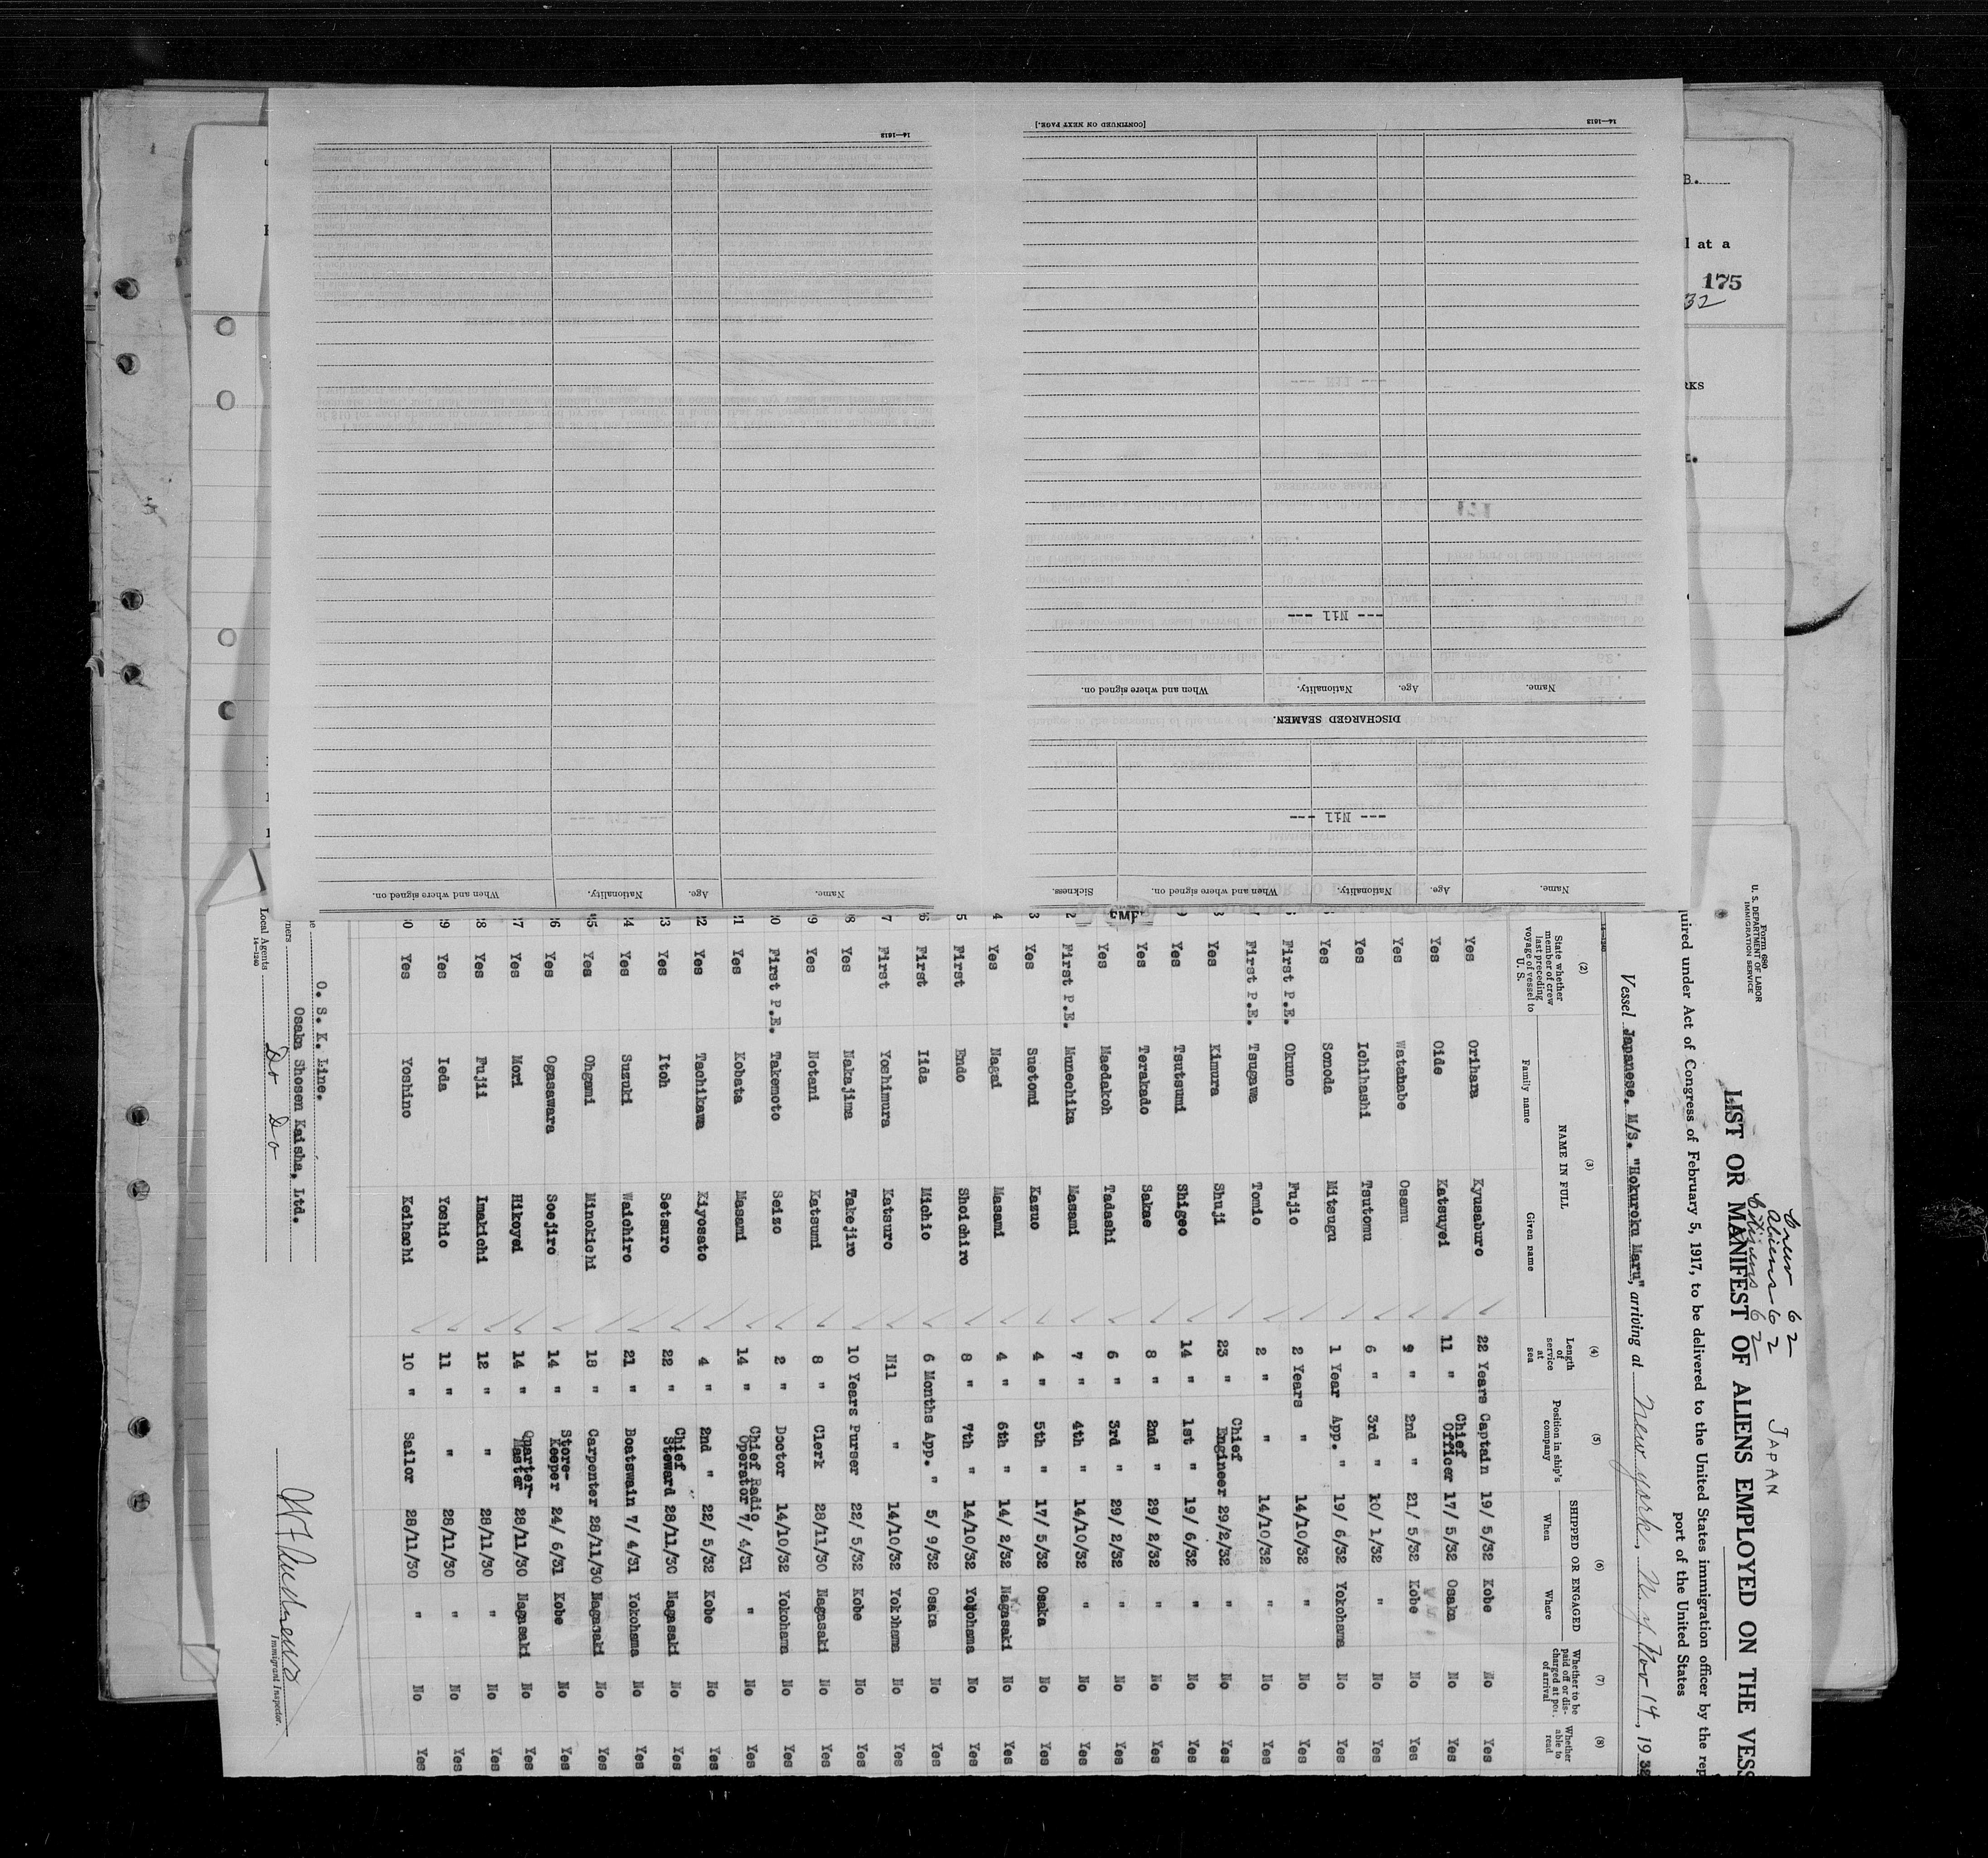 [CONTINUED ON NEXT PAGE.]
14—1613
14—1613
DISCHARGED SEAMEN.
Name. Age. Nationality. When and where signed on.
--- Nil ---
Name. Age. Nationality. When and where signed on. Sickness.
--- Nil ---
Name. Age. Nationality. When and where signed on.
B.
at a
175
32
RKS
Form 680
U. S. DEPARTMENT OF LABOR
IMMIGRATION SERVICE
Crew 62
Aliens 62
Citizens
62
JAPAN
LIST OR MANIFEST OF ALIENS EMPLOYED ON THE VESS
uired under Act of Congress of February 5, 1917, to be delivered to the United States immigration officer by the rep
port of the United States
Vessel Japanese. M/S. "Hokuroku Maru", arriving at New York, N.Y. Nov 14, 1932
(2) (3) (4) (5) (6) (7) (8)
State whether member of crew last preceding voyage of vessel to U. S. NAME IN FULL Family name Given name Length of service at sea Position in ship's company SHIPPED OR ENGAGED When Where Whether to be paid off or discharged at port of arrival Whether able to read
Yes Orihara Kyusaburo 22 Years Captain 19/ 5/32 Kobe No Yes
Yes Oide Katsuyei 11 " Chief Officer 17/ 5/32 Osaka No Yes
Yes Watahabe Osamu " 2nd " 21/ 5/32 Kobe No Yes
Yes Ichihashi Tsutomu 6 " 3rd " 10/ 1/32 " No Yes
Yes Sonoda Mitsugu 1 Year App. " 19/ 6/32 Yokohama No Yes
First P.E. Okuno Fujio 2 Years " 14/10/32 " No Yes
First P.E. Tsugawa Tomio 2 " " 14/10/32 " No Yes
Yes Kimura Shuji 23 " Chief Engineer 29/2/32 " No Yes
9 Yes Tsutsumi Shigeo 14 " 1st " 19/ 6/32 " No Yes
Yes Terakado Sakae 8 " 2nd " 29/ 2/32 " No Yes
Yes Maedakoh Tadashi 6 " 3rd " 29/ 2/32 " No Yes
2 First P.E. Munechika Masami 7 " 4th " 14/10/32 " No Yes
3 Yes Suetomi Kazuo 4 " 5th " 17/ 5/32 Osaka No Yes
4 Yes Nagai Masami 4 " 6th " 14/ 2/32 Nagasaki No Yes
5 First Endo Shoichiro 8 " 7th " 14/10/32 Yokohama No Yes
6 First Iida Michio 6 Months App. " 5/ 9/32 Osaka No Yes
7 First Yoshimura Katsuro Nil " 14/10/32 Yokohama No Yes
8 Yes Nakajima Takejiro 10 Years Purser 22/ 5/32 Kobe No Yes
9 Yes Notani Katsumi 8 " Clerk 28/11/30 Nagasaki No Yes
0 First P.E. Takemoto Seizo 2 " Doctor 14/10/32 Yokohama No Yes
1 Yes Kobata Masami 14 " Chief Radio Operator 7/ 4/31 " No Yes
22 Yes Tachikawa Kiyosato 4 " 2nd " 22/ 5/32 Kobe No Yes
3 Yes Itoh Setsuro 22 " Chief Steward 28/11/30 Nagasaki No Yes
4 Yes Suzuki Waichiro 21 " Boatswain 7/ 4/31 Yokohama No Yes
5 Yes Ohgami Minokichi 18 " Carpenter 28/11/30 Nagasaki No Yes
6 Yes Ogasawara Soejiro 14 " Store-Keeper 24/ 6/31 Kobe No Yes
7 Yes Mori Hikoyei 14 " Quarter-Master 28/11/30 Nagasaki No Yes
8 Yes Fujii Imakichi 12 " " 28/11/30 " No Yes
9 Yes Ieda Yoshio 11 " " 28/11/30 " No Yes
0 Yes Yoshino Keihachi 10 " Sailor 28/11/30 " No Yes
O. S. K. Line.
ners Osaka Shosen Kaisha, Ltd.
Local Agents Do Do
14—1240
Immigrant Inspector.